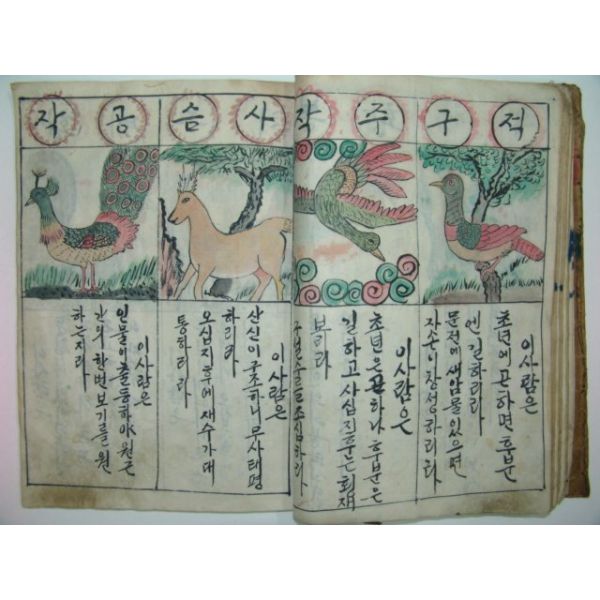 적구
이사람은
초년에 곤하면 후분
엔 길하리라
문전에 새암물 있으면
자손이 장성하리라
주작
이사람은
초년은 곤하나 후분은
길하고 사십지후는 횡재
보리라
구설수를 조심하라
사슴
이사람은
산신이 구조하니 무사태평
하리라
오십지후에 재수가 대
통하리라
공작
이사람은
인물이 출등하야 원근
간의 한번 보기를 원
하는지라